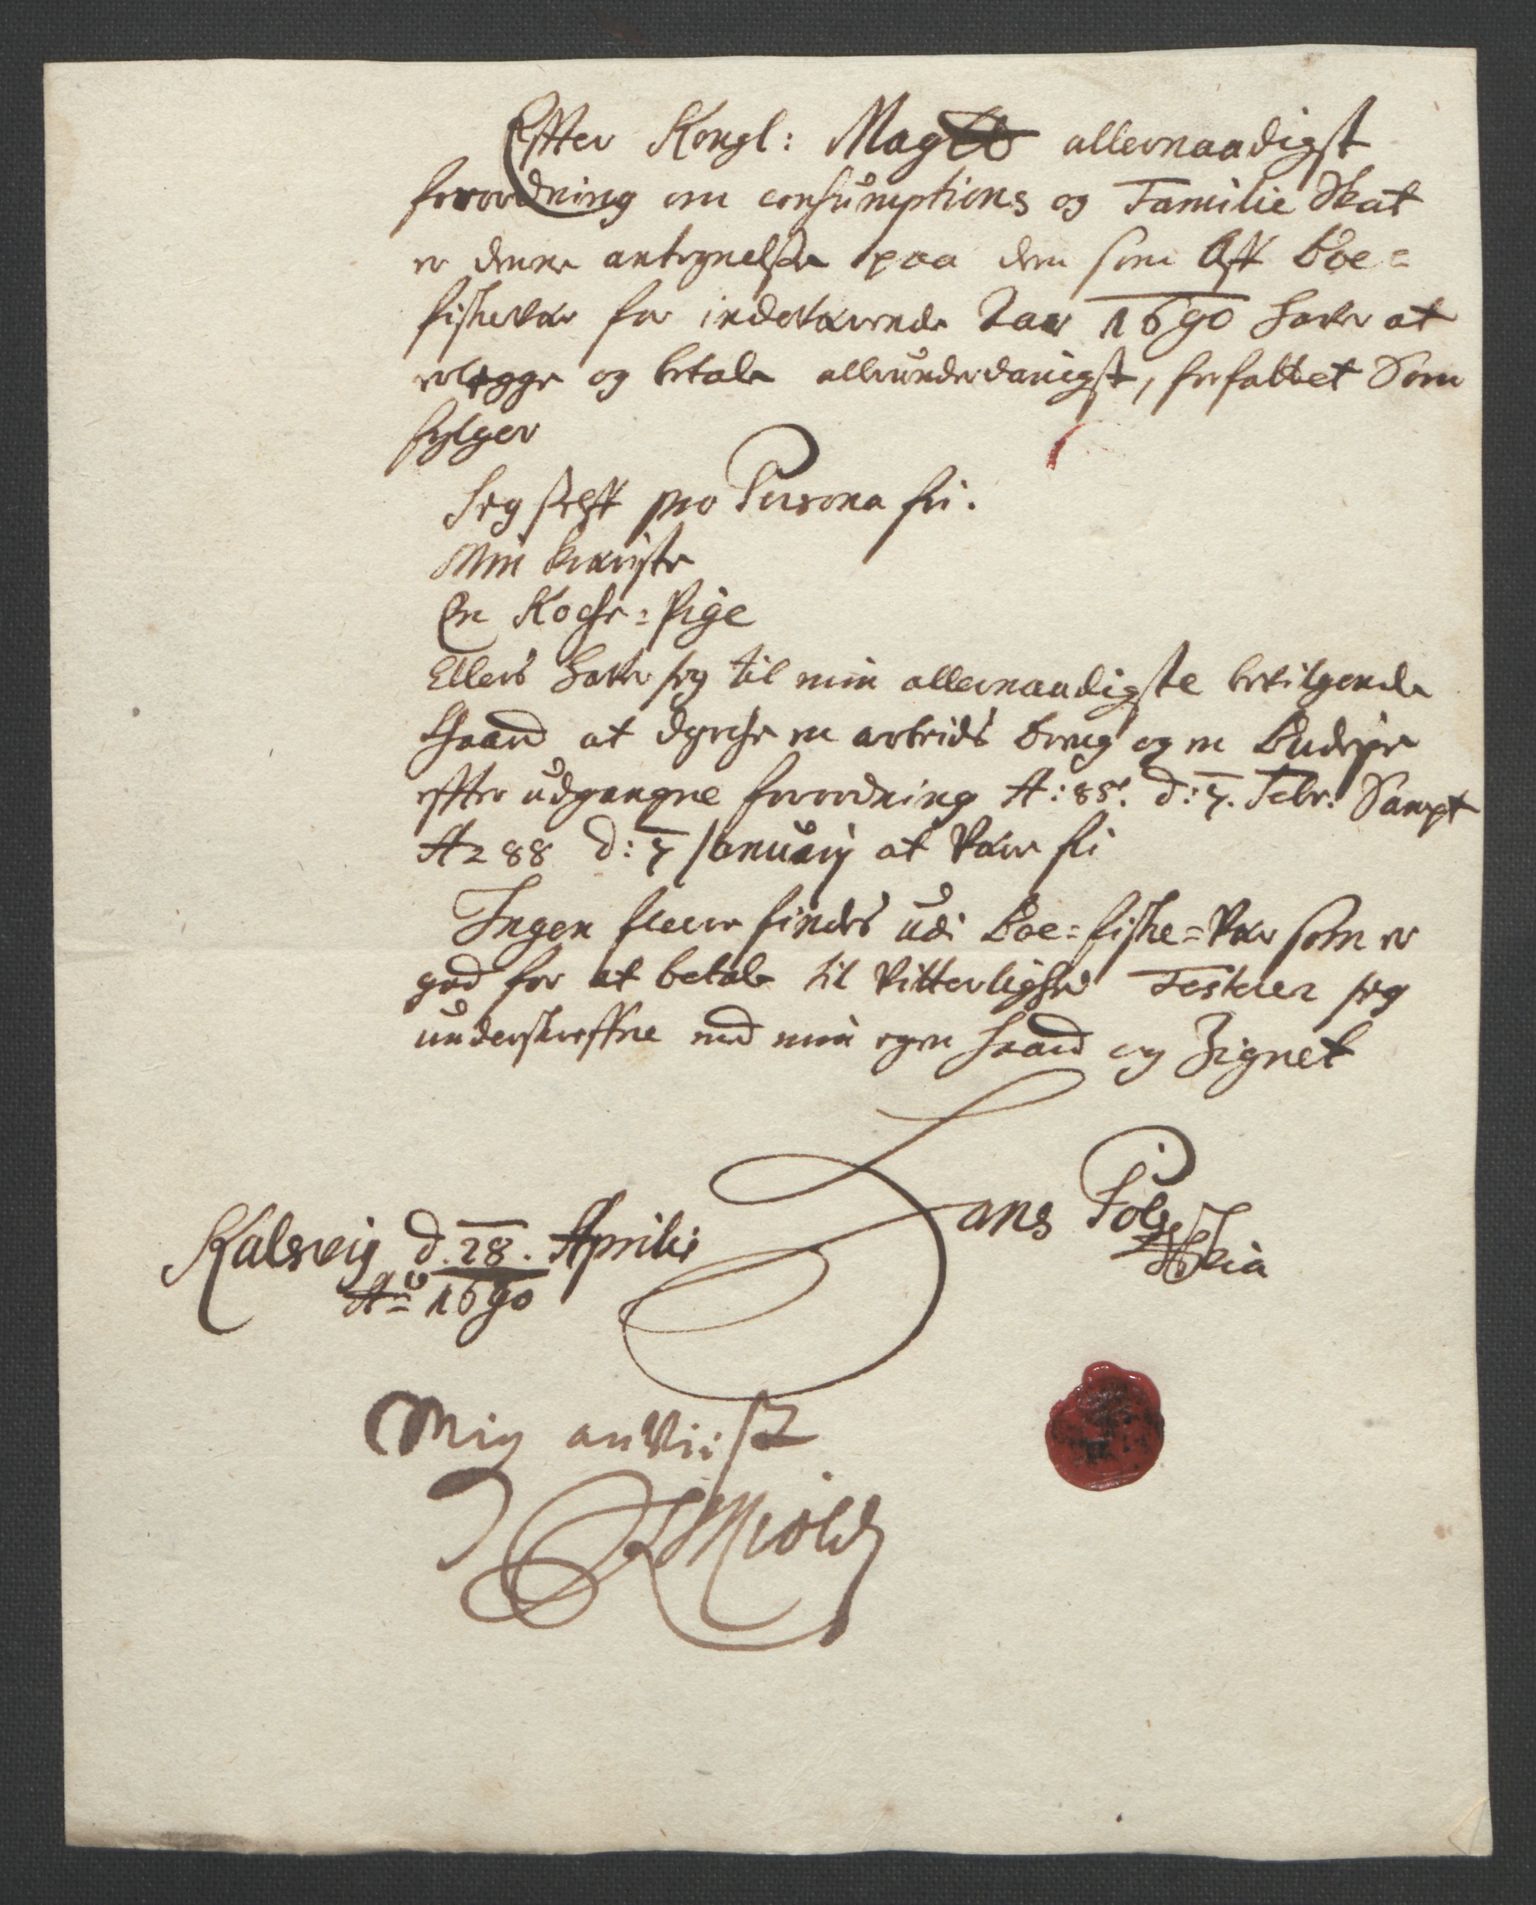 Effter Kongl: Magtts allernaadigst
forordning om consumptions og Familie Skat
er denne antegnelse paa dem som Aff Boe=
fiskevær for indeværende Aar 1690 haver at
erlegge og betale allerunderdanigst, forfattet Som
følger
Jeg self pro Persona fri.
Min kieriste
En Kocke=Pige
Ellers haver jeg til min allernaadigste bevilgende
Gaard at dyrcke en arbeids dreng og en Budeye
effter udgangne forordning A: 85. d: 7. Febr: Sampt
A: 88 d: 7 Januarij at være fri
Ingen fleere findes udi Boe=fiske=Vær som er
god for at betale til Vitterlighed Testerer jeg
underskreffne med min egen haand og Zignet
Hans Pols
Kalsvig d. 28. Aprilis
Ao 1690
Mig anviist